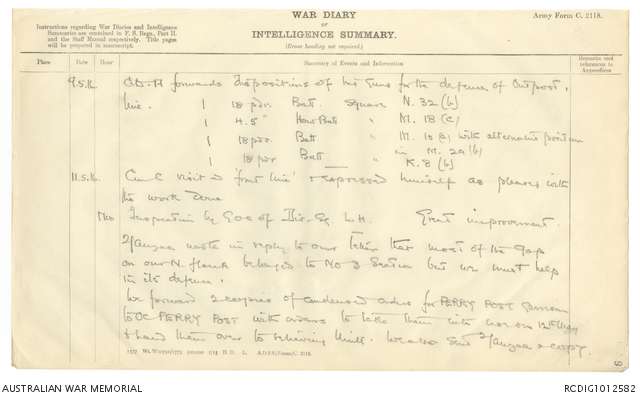 Instructions regarding War Diaries and Intelligence
Summaries are contained in F. S. Regs., Part II.
and the Staff Manual respectively. Title pages
will be prepared in manuscript.
WAR DIARY
OF
INTELLIGENCE SUMMARY.
(Erase heading not required.)
Army Form C. 2118.
Place Date Hour Summary of Events and Information Remarks and references to Appendices
9.5.16 forwards Dispositions of his Guns for the defence of Outpost
line. 1 18 pdr. Batt. Square N. 32 (b)
1 4.5" How Batt " M. 18 (c)
1 18 pdr. Batt " M. 10 (a) with alternative position
in M. 29 (b)
1 18 pdr Batt " K. 8 (b)
11.5.16 C in C visited front line & expressed himself as pleased with
the work done
Inspection by GOC of Div. L.H. Great improvement.
2/Anzac wrote in reply to our letter that most of the gap
on our N. flank belonged to No 3 Section but we must help
in its defence.
We forward 2 copies of condensed orders for PERRY POST
to OC PERRY POST with orders to take them into use on 12th May
& hand them over to relieving Unit. We also send 2/Anzac a copy.
A.D.S.S./Forms/C. 2118.
AUSTRALIAN WAR MEMORIAL
RCDIG1012582